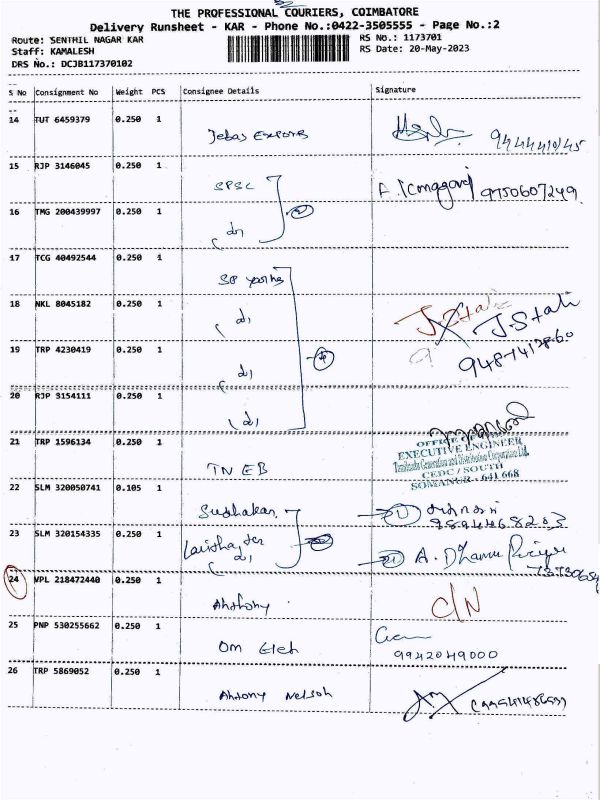 THE PROFESSIONAL COURIERS, COIMBATORE
Delivery Runsheet - KAR - Phone No.:0422-3505555 - Page No.:2
Route: SENTHIL NAGAR KAR RS No.: 1173701
Staff: KAMALESH RS Date: 20-May-2023
DRS No.: DCJB117370102
S No Consignment No Weight PCS Consignee Details Signature
14 TUT 6459379 0.250 1
Jebas Exports
15 RJP 3146045 0.250 1
SPSC 9750607249
16 TMG 200439997 0.250 1
17 TCG 40492544 0.250 1
18 NKL 8045182 0.250 1
J. Stali
19 TRP 4230419 0.250 1
20 RJP 3154111 0.250 1
21 TRP 1596134 0.250 1
OFFICE OF
EXECUTIVE ENGINEER
Tamilnadu Generation and Distribution Corporation Ltd.
CEDC / SOUTH
SOMANUR - 641 668
TN EB
22 SLM 320050741 0.105 1
Sudhakar
9894468203
23 SLM 320154335 0.250 1
24 VPL 218472440 0.250 1
Anthony C/N
25 PNP 530255662 0.250 1
Om Elen
9942049000
26 TRP 5869052 0.250 1
Antony Nelson